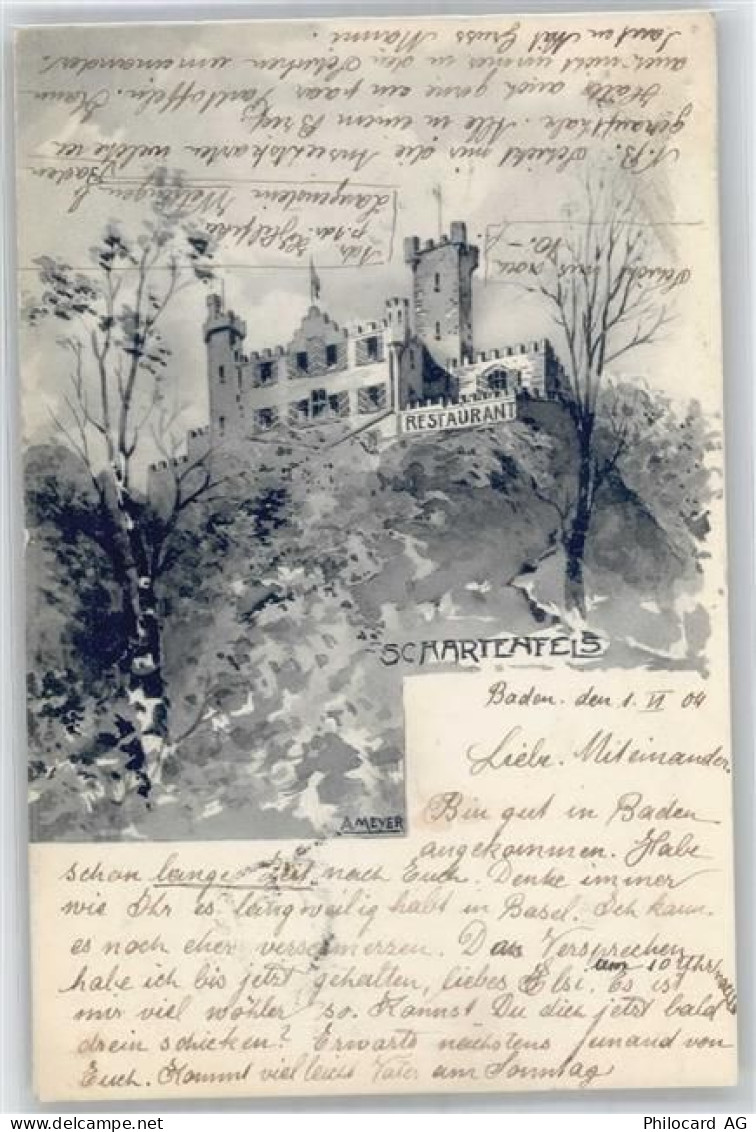 N.B. Schickt mir die Ansichtskarten welche ich
gekauft habe. Alle in einem Brief.
Hätte auch gerne ein paar Kartoffeln. Kann
auch nicht immer in den Schuhen umeinander.
Mit Gruss Mammi.
Adr.
Langenstein Wettingen b/ Baden
Schickt mir noch 10.-
RESTAURANT
SCHARTENFELS
A. MEYER
Baden. den 1. VI 04
Liebe. Miteinander.
Bin gut in Baden
angekommen. Habe
schon lange Zeit nach Euch. Denke immer
wie Ihr es langweilig habt in Basel. Ich kann
es noch eher verschmerzen. Das Versprechen
um 10 Uhr
habe ich bis jetzt gehalten, liebes Elsi. Es ist
mir viel wöhler so. Kannst Du dich jetzt bald
drein schicken? Erwarte nächstens jemand von
Euch. Kommt vielleicht Vater am Sonntag
Philocard AG